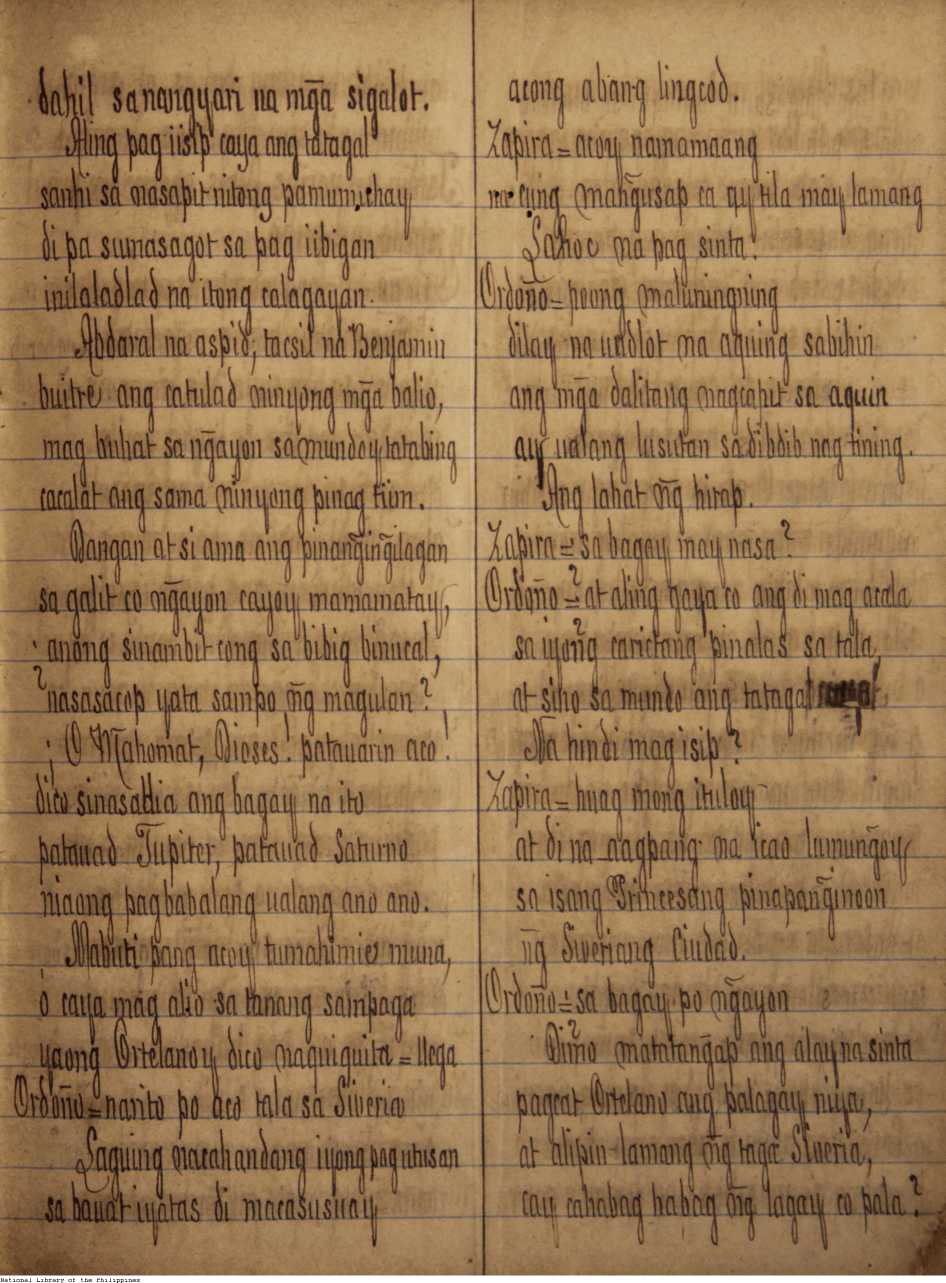 dahil sa nangyari na mg̃a sigalot.
Aling pag iisip caya ang tatagal
sanhi sa nasapit nitong pamumuchay
di pa sumasagot sa pag iibigan
inilaladlad na itong calagayan.
Abdaral na aspid, tacsil na Benjamin
buitre ang catulad ninyong mg̃a balio,
mag buhat sa ng̃ayon sa mundoy tatabing
cacalat ang sama ninyong pinag tiim.
Dangan at si ama ang pinang̃ing̃ilagan
sa galit co ng̃ayon cayoy mamamatay,
anong sinambit cong sa bibig binucal,
?nasasacop yata sampo ng̃ magulan?
¡O Mahomat, Dioses! patauarin aco!
dico sinasadia ang bagay na ito
patauad Jupiter, patauad Saturno
niaong pagbabalang ualang ano ano.
Mabuti pang acoy tumahimic muna,
ó caya mag alio sa tanang sampaga
yaong Ortelanoy dico naquiquita = llega
Ordoño = narito po aco tala sa Siveria
Laguing nacahandang iyong pag utusan
sa bauat iyatas di macasusuay
acong abang lingcod.
Zapira = acoy namamaang
cung mang̃usap ca ay tila may lamang
Lahoc na pag sinta.
Ordoño = poong maluningning
dilay na undlot na aquing sabihin
ang mg̃a dalitang nagcapit sa aquin
ay ualang lusutan sa dibdib nag tining.
Ang lahat ng̃ hirap.
Zapira = sa bagay may nasa?
Ordoño = ?at aling gaya co ang di mag acala
sa iyong̃ carictang pinalas sa tala,
at sino sa mundo ang tatagal
Na hindi mag isip?
Zapira = huag mong ituloy
at di na aagpang na icao lumung̃oy
sa isang Princesang pinapang̃inoon
ng̃ Siveriang Ciudad.
Ordoño = sa bagay po ng̃ayon
?Dimo matatang̃ap ang alay na sinta
pagcat Ortelano ang palagay niya,
at alipin lamang ng̃ taga Siveria,
cay cahabag habag ng̃ lagay co pala?
National Library of the Philippines